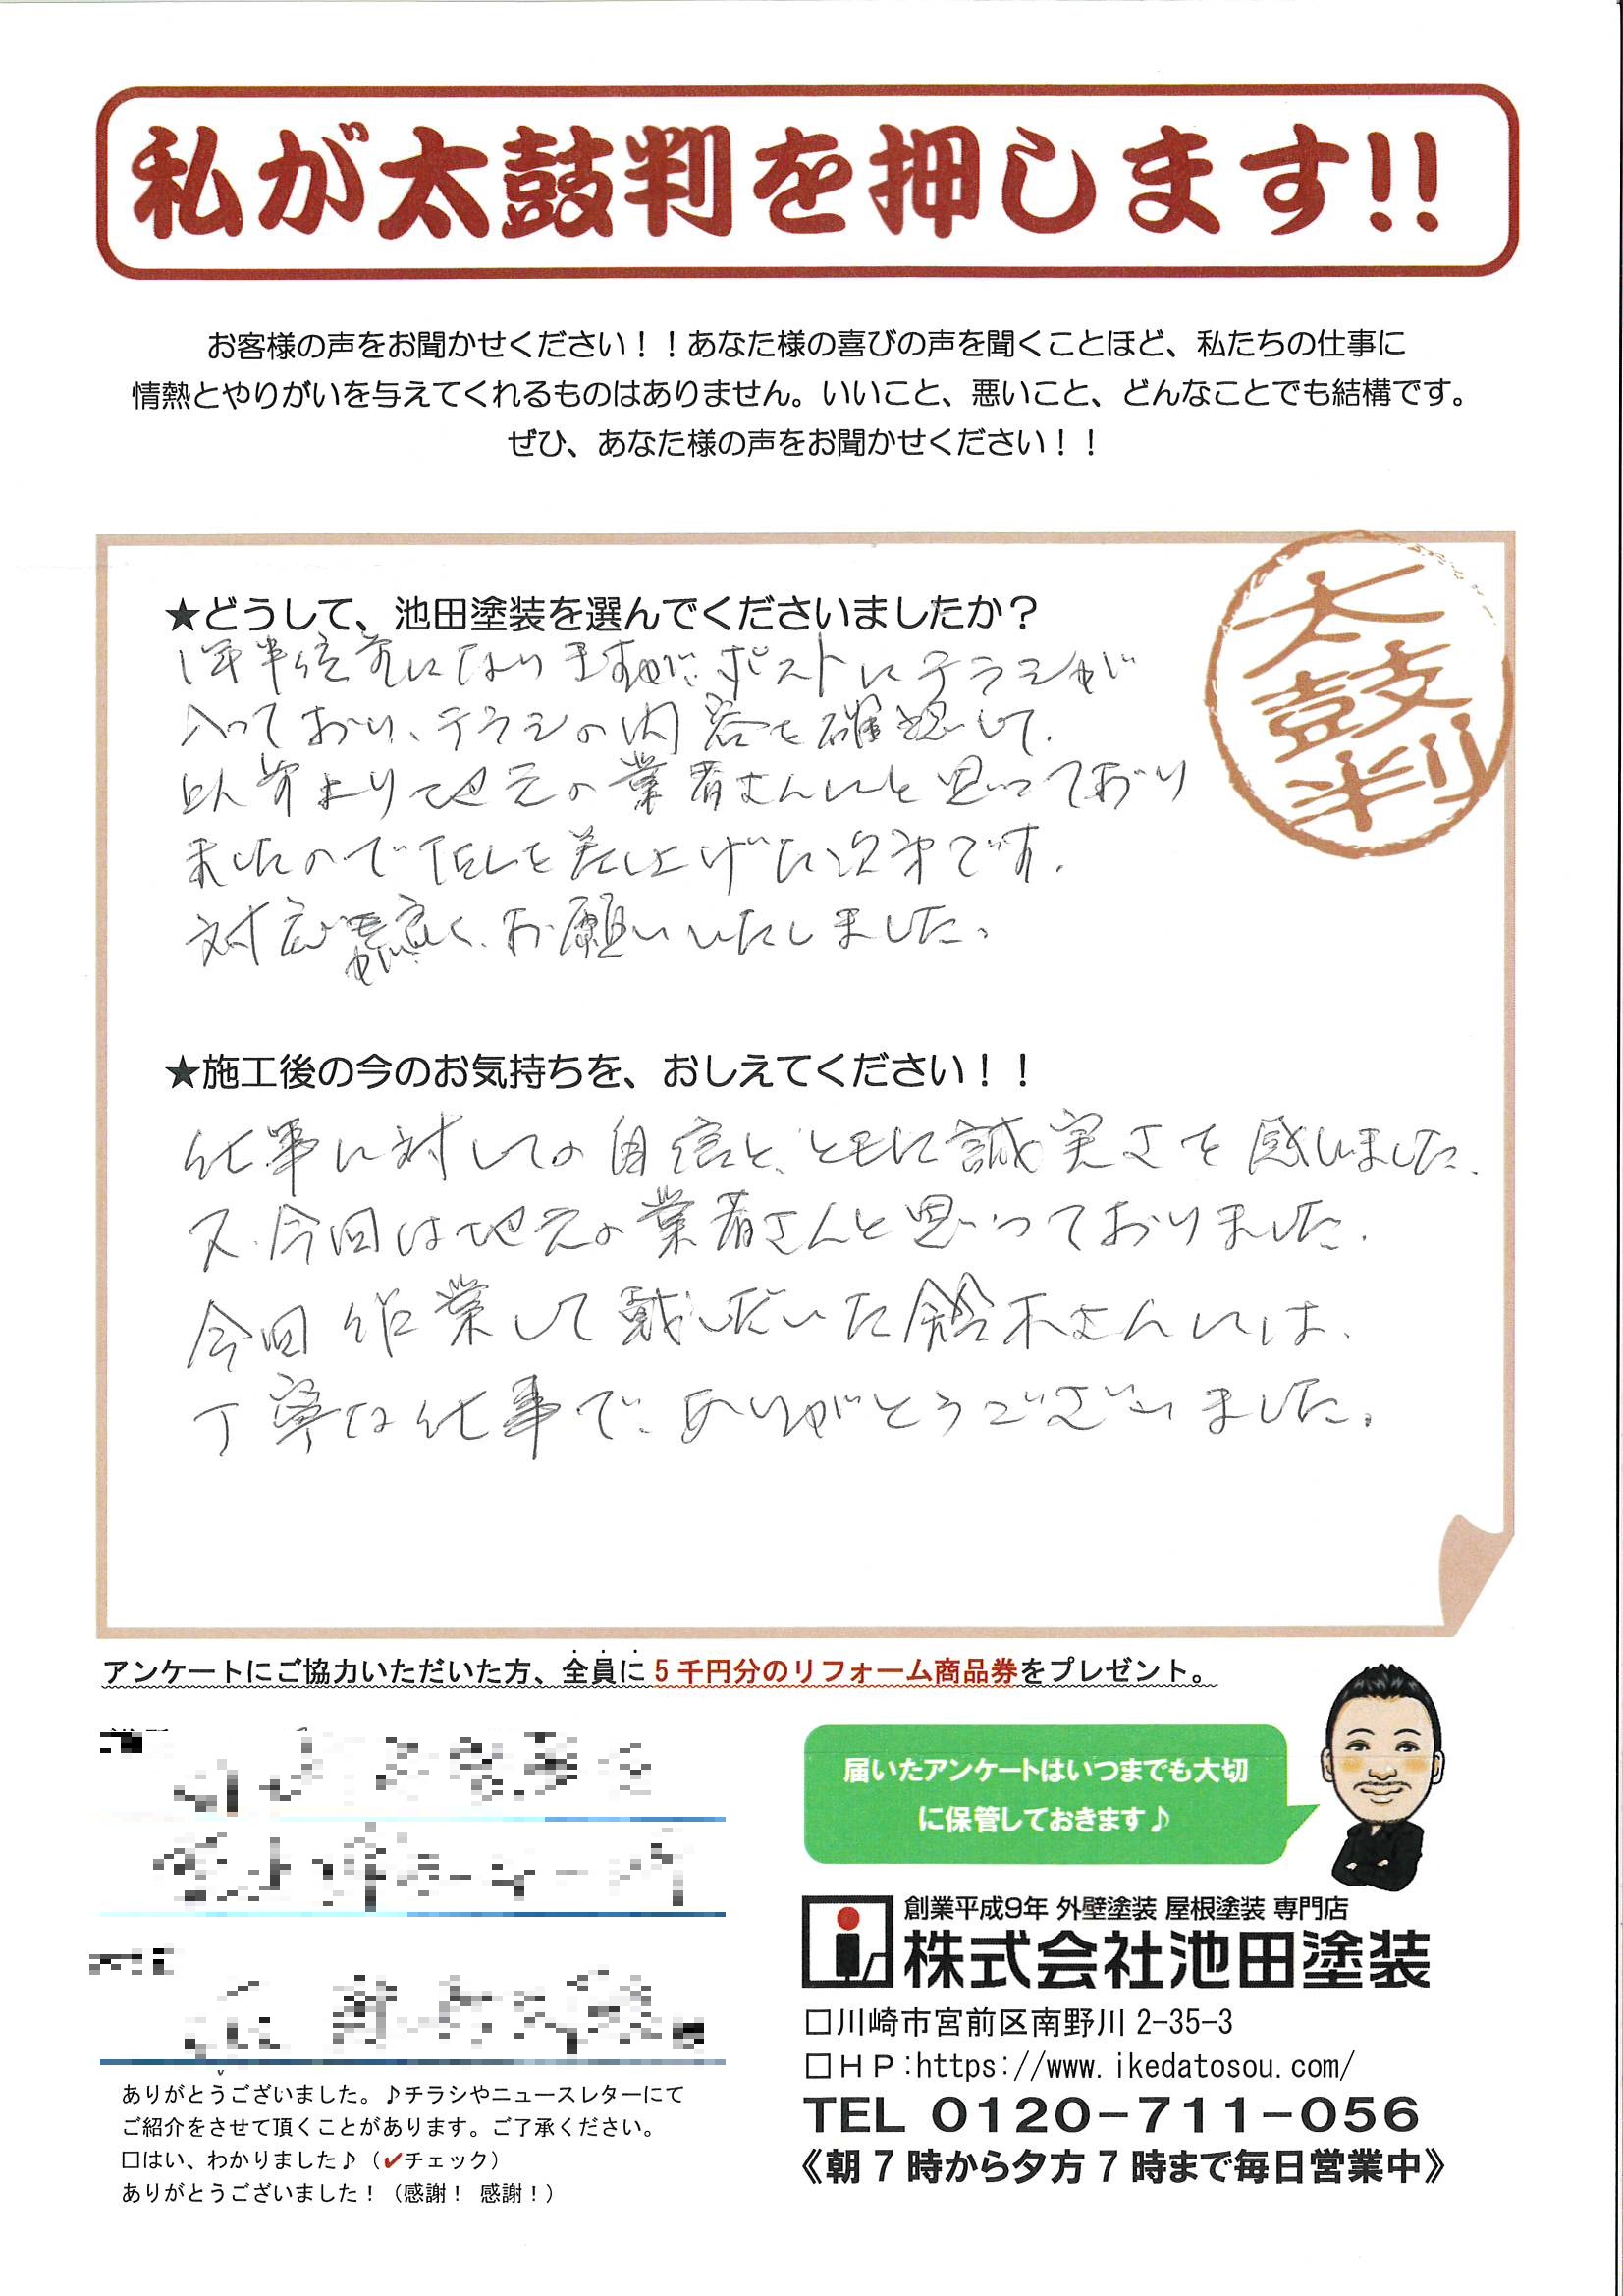 私が太鼓判を押します!!
お客様の声をお聞かせください！！あなた様の喜びの声を聞くことほど、私たちの仕事に
情熱とやりがいを与えてくれるものはありません。いいこと、悪いこと、どんなことでも結構です。
ぜひ、あなた様の声をお聞かせください！！
太鼓判
★どうして、池田塗装を選んでくださいましたか？
1年半位前になりますが、ポストにチラシが
入っており、チラシの内容を確認して、
以前より地元の業者さんにと思っており
ましたのでTELを差し上げた次第です。
対応が良く、お願いいたしました。
★施工後の今のお気持ちを、おしえてください！！
仕事に対しての自信と、ともに誠実さを感じました。
又、今回は地元の業者さんと思っておりました。
今回作業して戴いだいた鈴木さんには、
丁寧な仕事で、ありがとうございました。
アンケートにご協力いただいた方、全員に5千円分のリフォーム商品券をプレゼント。
届いたアンケートはいつまでも大切
に保管しておきます♪
創業平成9年 外壁塗装 屋根塗装 専門店
株式会社池田塗装
□川崎市宮前区南野川2-35-3
□ＨＰ:https://www.ikedatosou.com/
TEL 0120-711-056
《朝7時から夕方7時まで毎日営業中》
ありがとうございました。♪チラシやニュースレターにて
ご紹介をさせて頂くことがあります。ご了承ください。
□はい、わかりました♪（✔チェック）
ありがとうございました！（感謝！ 感謝！）